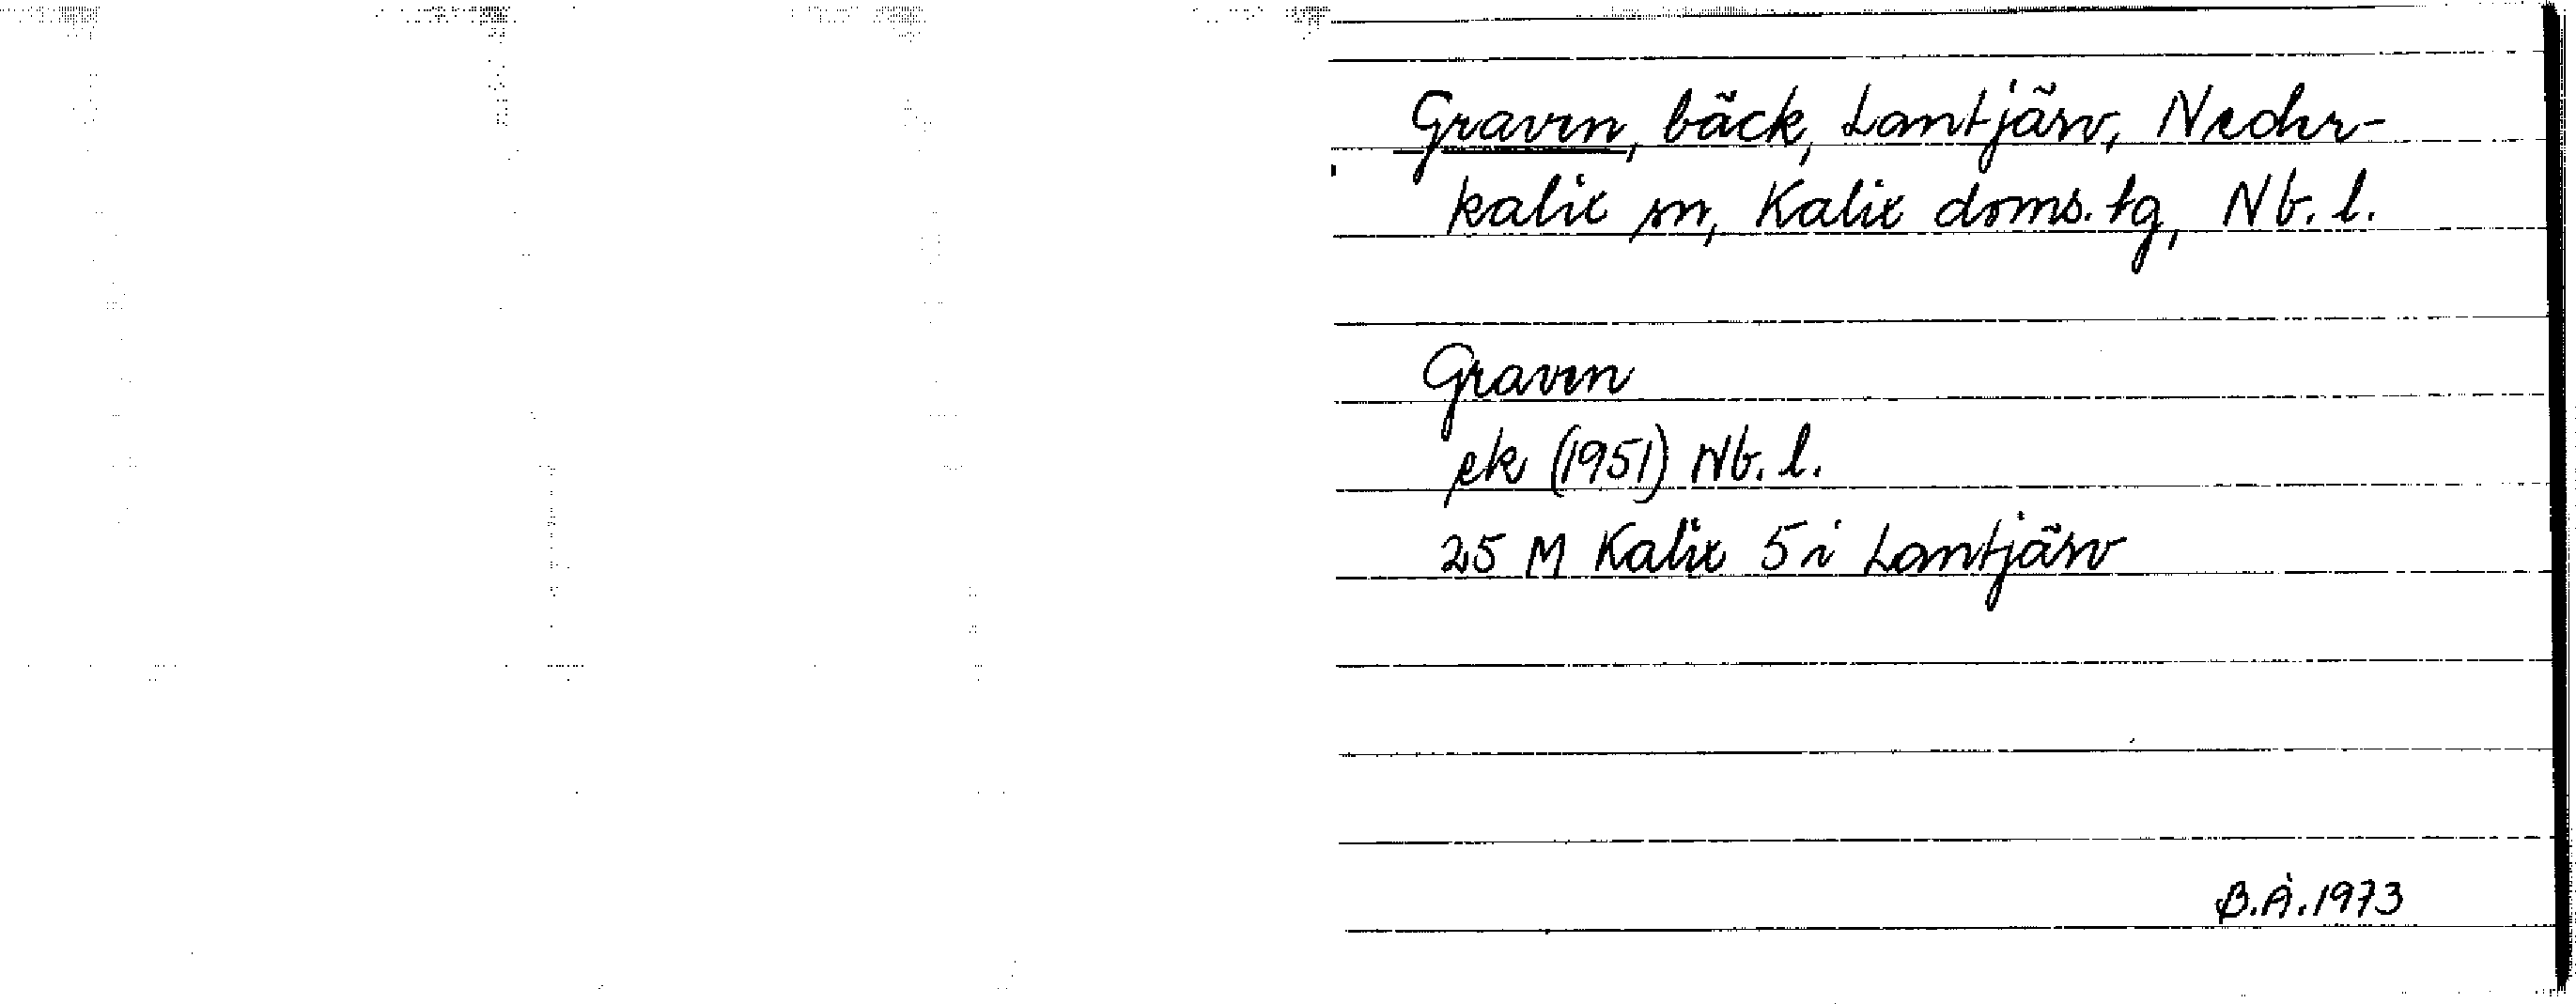 Graven, bäck, Lantjärv, Neder-
kalix sn, Kalix doms.tg, Nb. l.
Graven
ek (1951) Nb. l.
25 M Kalix 5 i Lantjärv
B.Å.1973